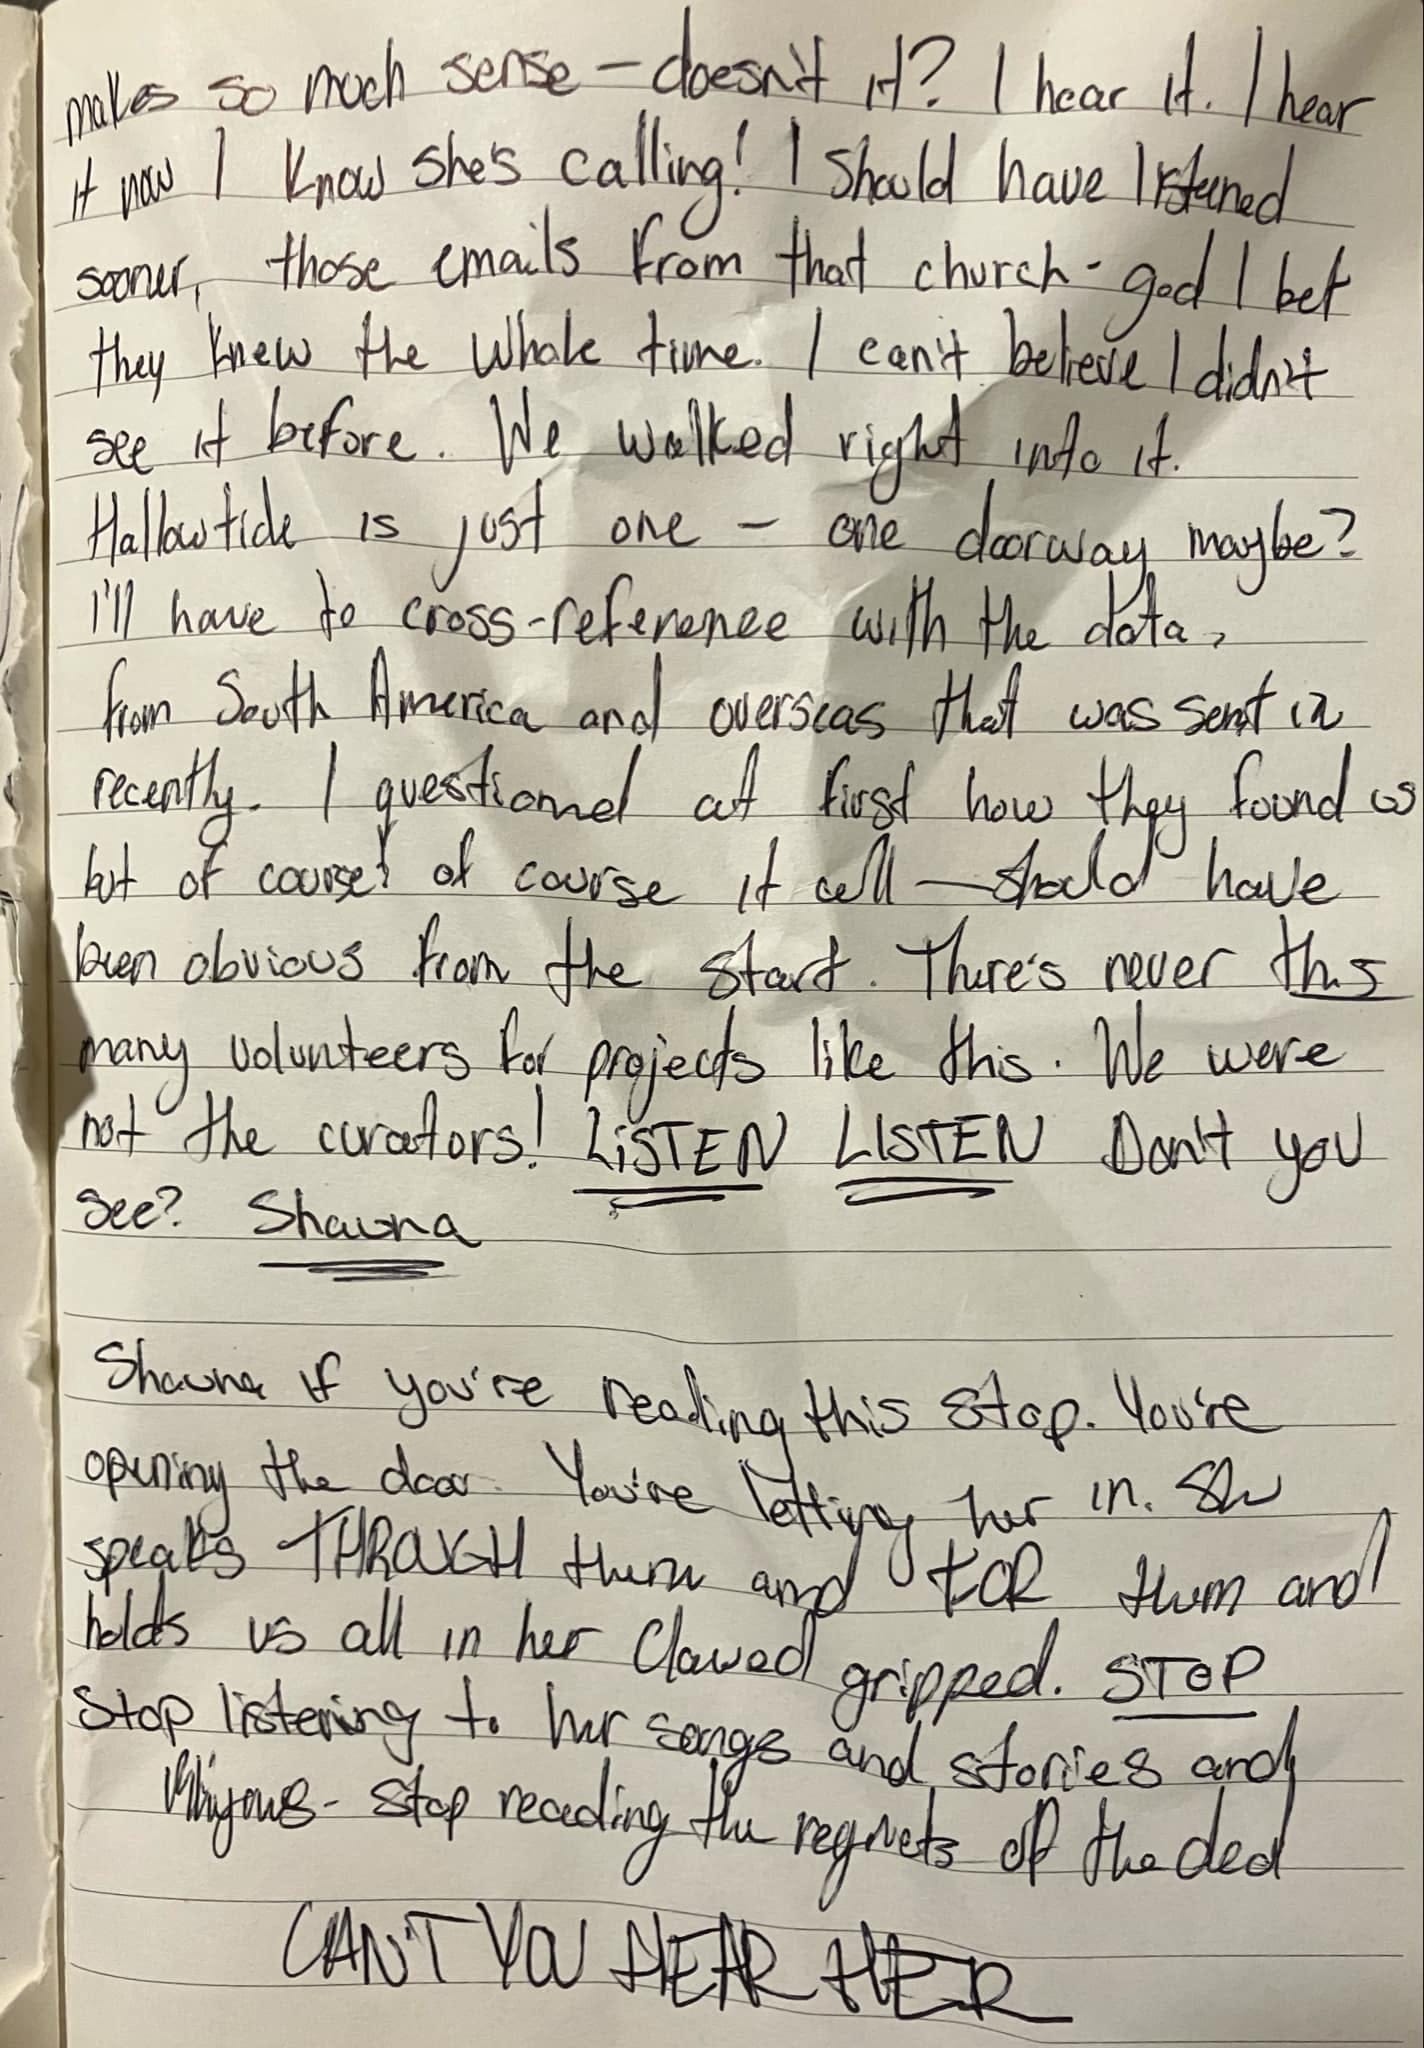 makes so much sense – doesn't it? I hear it. I hear
it now I know she's calling! I should have listened
sooner, those emails from that church - god I bet
they knew the whole time. I can't believe I didn't
see it before. We walked right into it.
Hallowtide is just one – one doorway maybe?
I'll have to cross-reference with the data,
from South America and overseas that was sent in
recently. I questioned at first how they found us
but of course! of course it all – should have
been obvious from the start. There's never this
many volunteers for projects like this. We were
not the curators! LISTEN LISTEN Don't you
see? Shauna
Shauna if you're reading this stop. You're
opening the door. You're letting her in. She
speaks THROUGH them and FOR them and
holds us all in her clawed gripped. STOP
Stop listening to her songs and stories and
- stop reading the regrets of the ded
CAN'T YOU HEAR HER